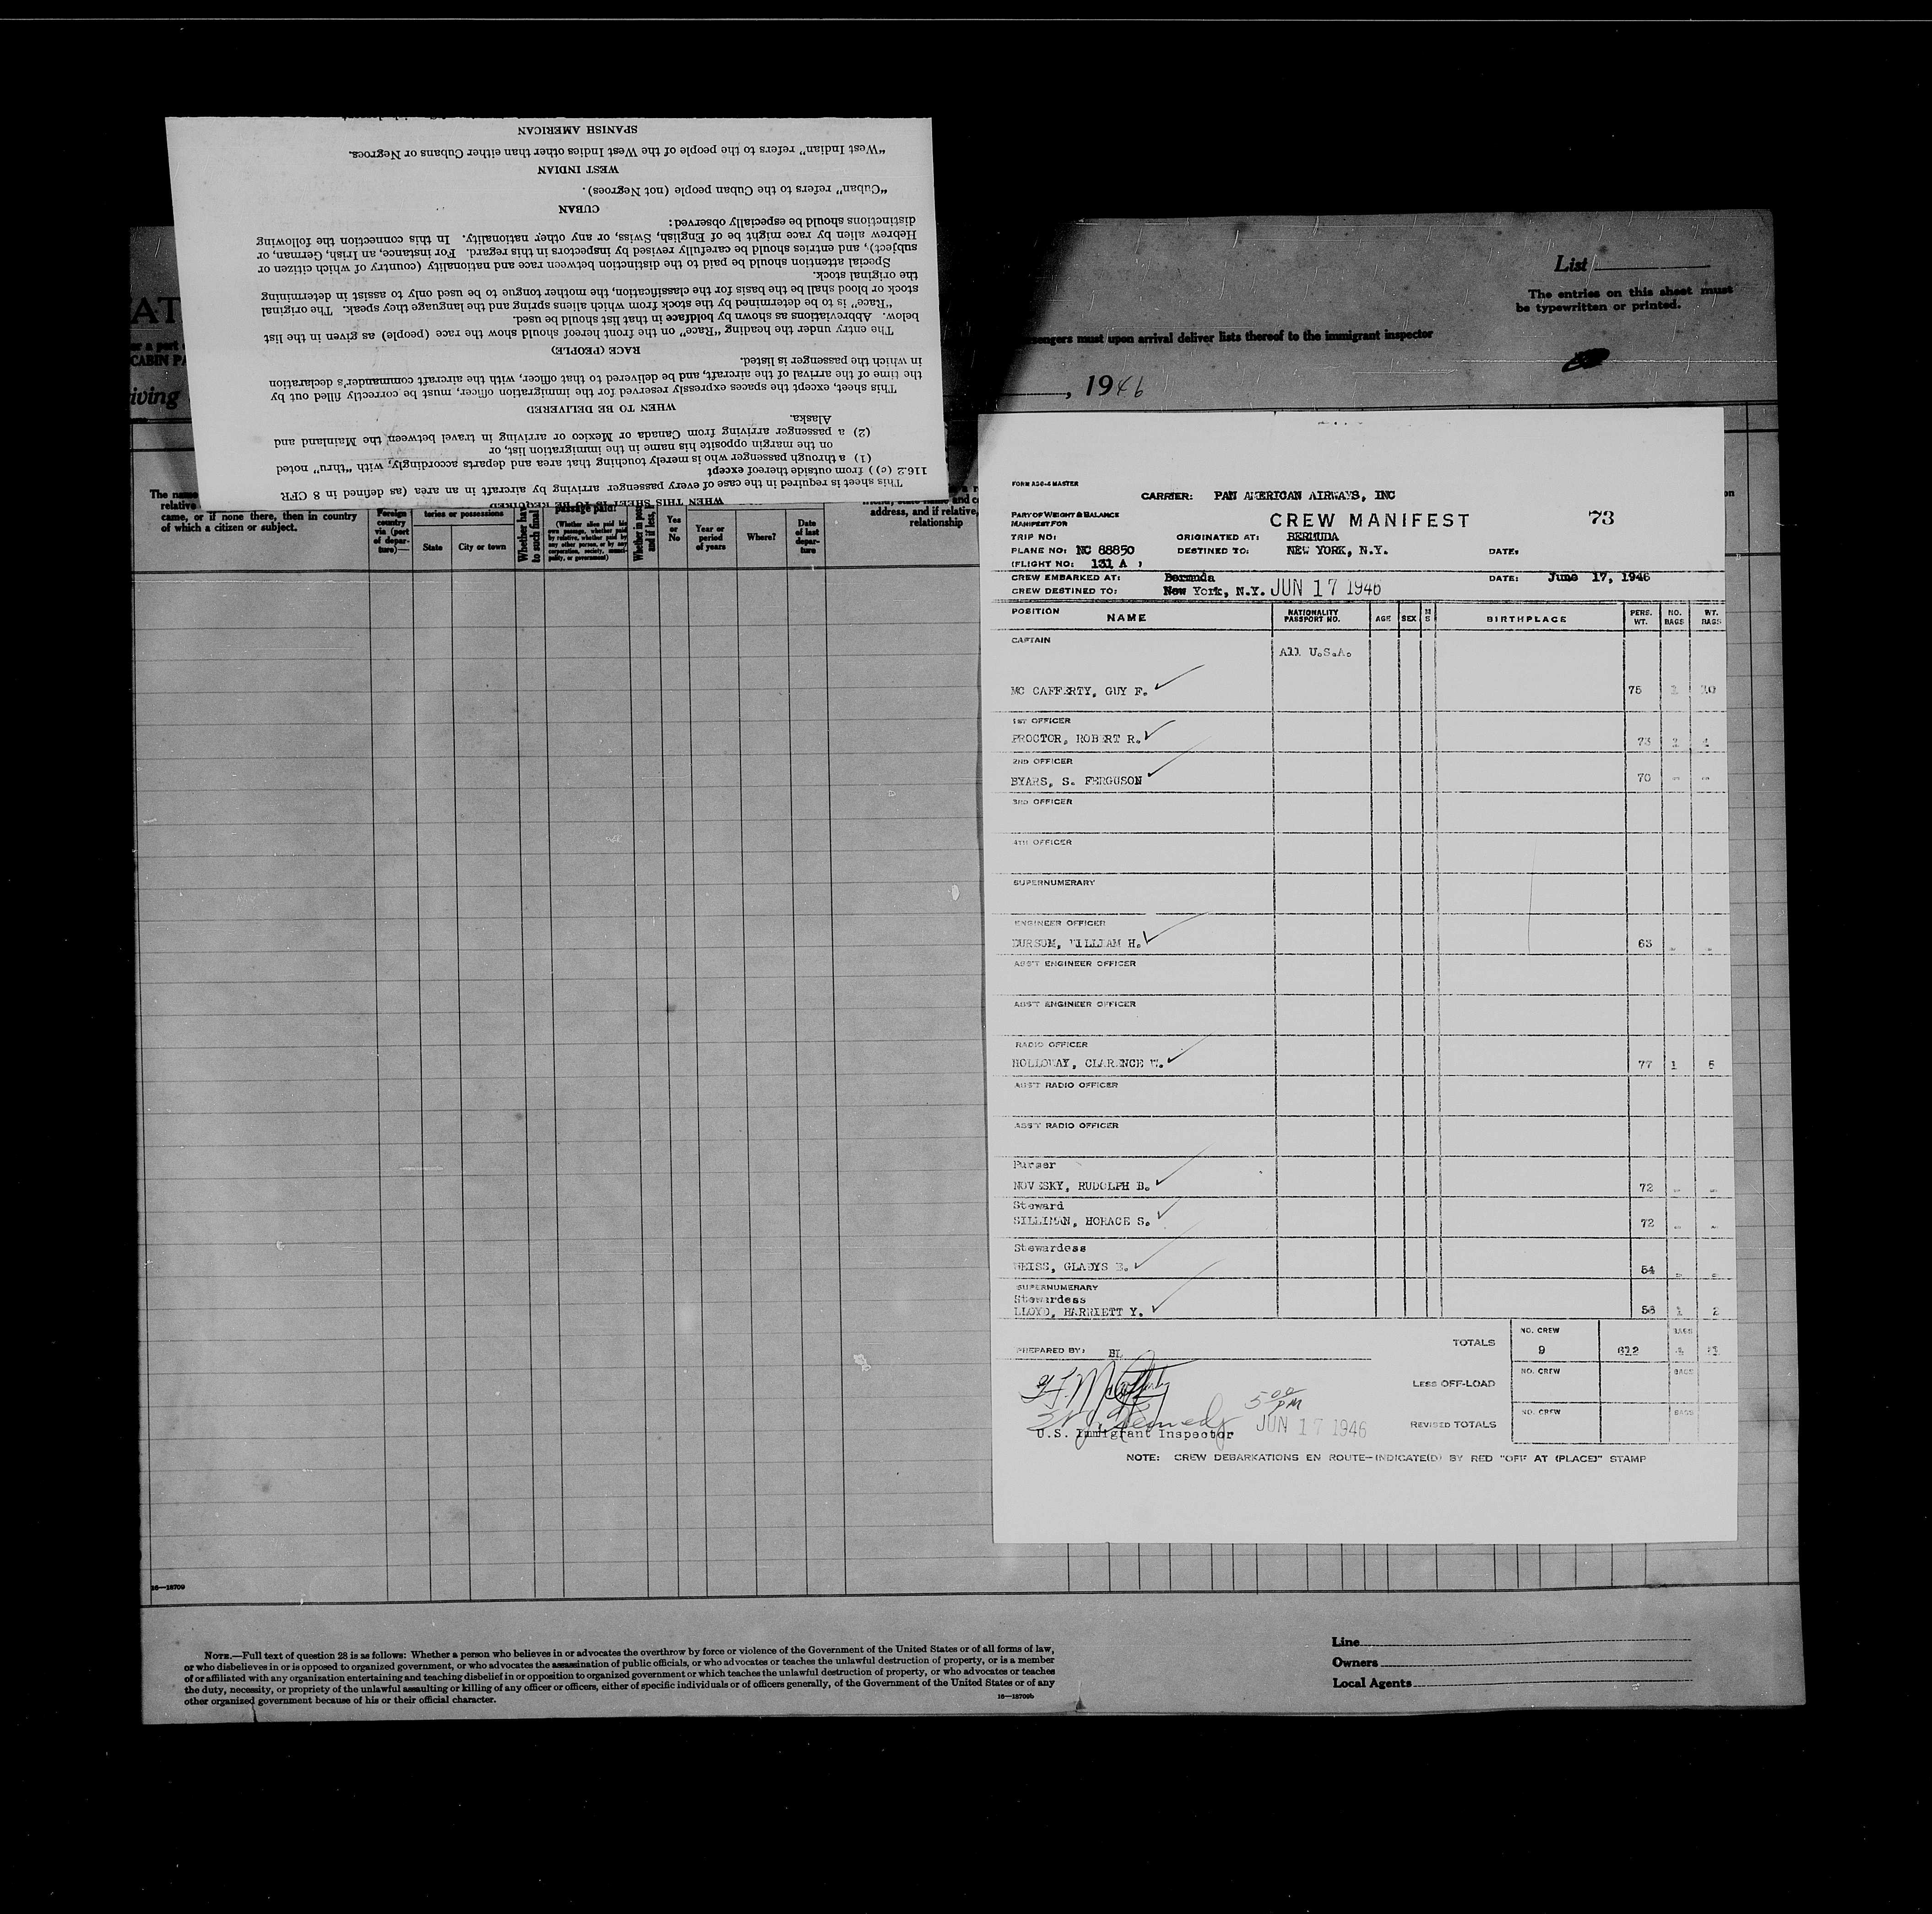 SPANISH AMERICAN
"West Indian" refers to the people of the West Indies other than either Cubans or Negroes.
WEST INDIAN
"Cuban" refers to the Cuban people (not Negroes).
CUBAN
distinctions should be especially observed:
Hebrew alien by race might be of English, Swiss, or any other nationality. In this connection the following
subject), and entries should be carefully revised by inspectors in this regard. For instance, an Irish, German, or
Special attention should be paid to the distinction between race and nationality (country of which citizen or
the original stock.
stock or blood shall be the basis for the classification, the mother tongue to be used only to assist in determining
"Race" is to be determined by the stock from which aliens spring and the language they speak. The original
below. Abbreviations as shown by boldface in that list should be used.
The entry under the heading "Race" on the front hereof should show the race (people) as given in the list
RACE (PEOPLE)
in which the passenger is listed.
the time of the arrival of the aircraft, and be delivered to that officer, with the aircraft commander's declaration
This sheet, except the spaces expressly reserved for the immigration officer, must be correctly filled out by
WHEN TO BE DELIVERED
Alaska.
(2) a passenger arriving from Canada or Mexico or arriving in travel between the Mainland and
on the margin opposite his name in the immigration list, or
(1) a through passenger who is merely touching that area and departs accordingly, with "thru" noted
116.2 (c)) from outside thereof except
This sheet is required in the case of every passenger arriving by aircraft in an area (as defined in 8 CFR
WHEN THIS SHEET IS TO BE REQUIRED
List
The entries on this sheet must
be typewritten or printed.
AT
er a port
CABIN PA
sengers must upon arrival deliver lists thereof to the immigrant inspector
iving
, 1946
The name
relative
came, or if none there, then in country
of which a citizen or subject.
Foreign
country
via (port
of depar-
ture)—
tories or possessions
State
City or town
Whether hav
to such final
passage paid?
(Whether alien paid his
own passage, whether paid
by relative, whether paid by
any other person, or by any
corporation, society, munici-
pality, or government)
Whether in poss
and if less,
Yes
or
No
Year or
period
of years
Where?
Date
of last
depar-
ture
address, and if relative,
relationship
FORM ASG-4 MASTER
CARRIER: PAN AMERICAN AIRWAYS, INC
PART OF WEIGHT & BALANCE
MANIFEST FOR
CREW MANIFEST
73
TRIP NO:
ORIGINATED AT: BERMUDA
PLANE NO: NC 88850
DESTINED TO: NEW YORK, N.Y.
DATE:
(FLIGHT NO: 131 A )
CREW EMBARKED AT: Bermuda
DATE: June 17, 1946
CREW DESTINED TO: New York, N.Y. JUN 17 1946
POSITION
NAME
NATIONALITY
PASSPORT NO.
AGE
SEX
M
S
BIRTHPLACE
PERS.
WT.
NO.
BAGS
WT.
BAGS
CAPTAIN
All U.S.A.
MC CAFFERTY, GUY F. 75
1ST OFFICER
PROCTOR, ROBERT R. 73
2ND OFFICER
BYARS, S. FERGUSON 70 - -
3RD OFFICER
4TH OFFICER
SUPERNUMERARY
ENGINEER OFFICER
BURSUM, WILLIAM H. 63 - -
ASS'T ENGINEER OFFICER
ASS'T ENGINEER OFFICER
RADIO OFFICER
HOLLOWAY, CLARENCE W. 77 1 5
ASS'T RADIO OFFICER
ASS'T RADIO OFFICER
Purser
NOVESKY, RUDOLPH B. 72 - -
Steward
SILLIMAN, HORACE S. 72 - -
Stewardess
WEISS, GLADYS E. 54 - -
SUPERNUMERARY
Stewardess
LLOYD, HARRIETT Y. 56 1 2
PREPARED BY: BL
TOTALS
NO. CREW
9
612
BAGS
LESS OFF-LOAD
NO. CREW
BAGS
REVISED TOTALS
NO. CREW
BAGS
5 00 PM
U.S. Immigrant Inspector
JUN 17 1946
NOTE: CREW DEBARKATIONS EN ROUTE—INDICATE(D) BY RED "OFF AT (PLACE)" STAMP
16—18709
NOTE.—Full text of question 28 is as follows: Whether a person who believes in or advocates the overthrow by force or violence of the Government of the United States or of all forms of law,
or who disbelieves in or is opposed to organized government, or who advocates the assassination of public officials, or who advocates or teaches the unlawful destruction of property, or is a member
of or affiliated with any organization entertaining and teaching disbelief in or opposition to organized government or which teaches the unlawful destruction of property, or who advocates or teaches
the duty, necessity, or propriety of the unlawful assaulting or killing of any officer or officers, either of specific individuals or of officers generally, of the Government of the United States or of any
other organized government because of his or their official character.
16—18709b
Line
Owners
Local Agents